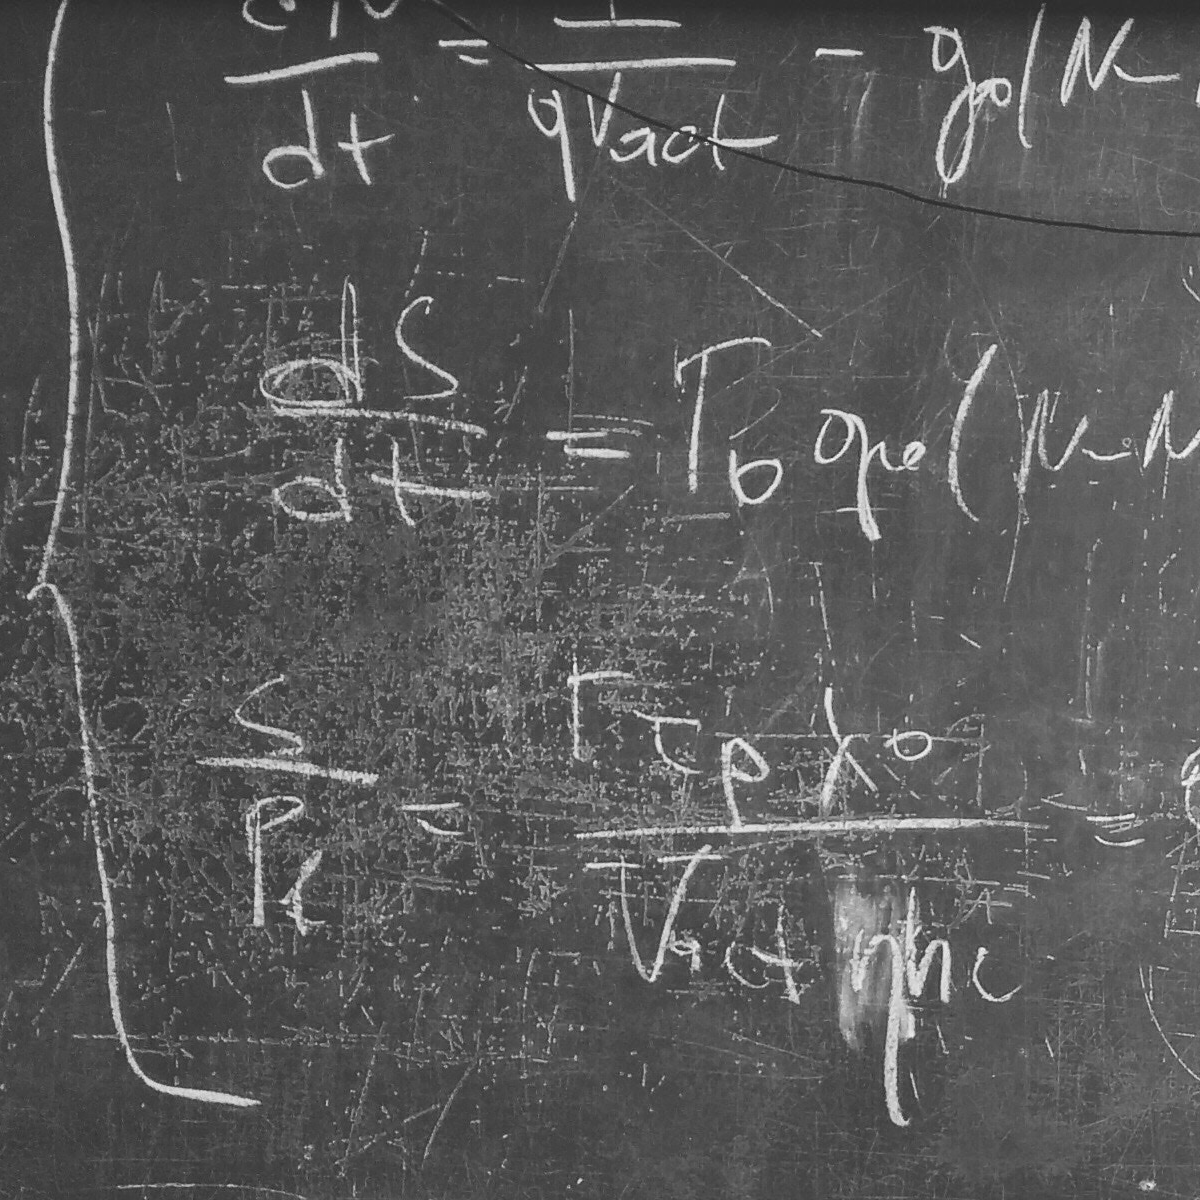 dN/dt = I/qVact - g₀(N-
dS/dt = Γ₀ g₀(N-N
S/Pε = Γτpλ₀/Vact ηhc =